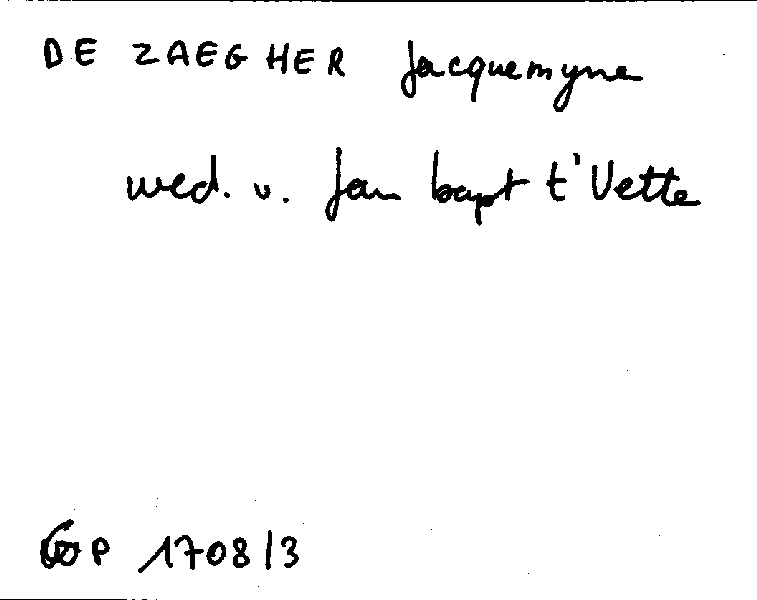 DE ZAEGHER Jacquemyne
wed. v. Jan bapt t'Vette
1708/3